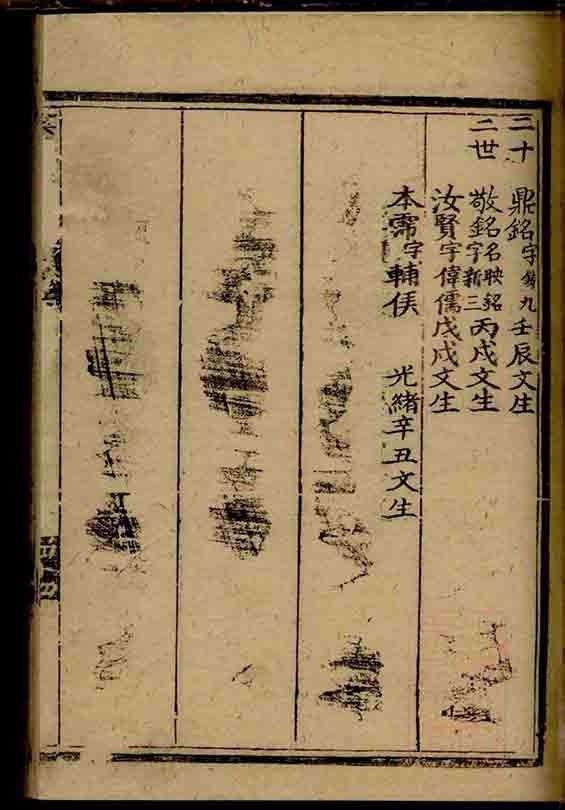 二十二世
鼎銘字錫九壬辰文生
敬銘名映銘字新三丙戌文生
汝賢字偉儒戊戌文生
本霈字輔侯 光緒辛丑文生